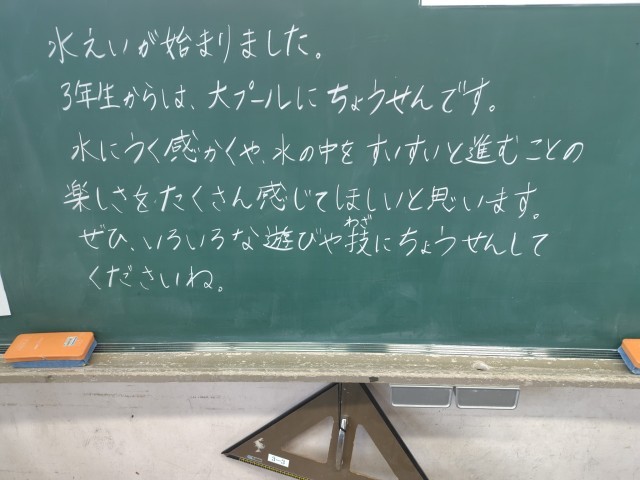 水えいが始まりました。
3年生からは、大プールにちょうせんです。
水にうく感かくや、水の中をすいすいと進むことの
楽しさを、たくさん感じてほしいと思います。
わざ
ぜひ、いろいろな遊びや技にちょうせんして
くださいね。